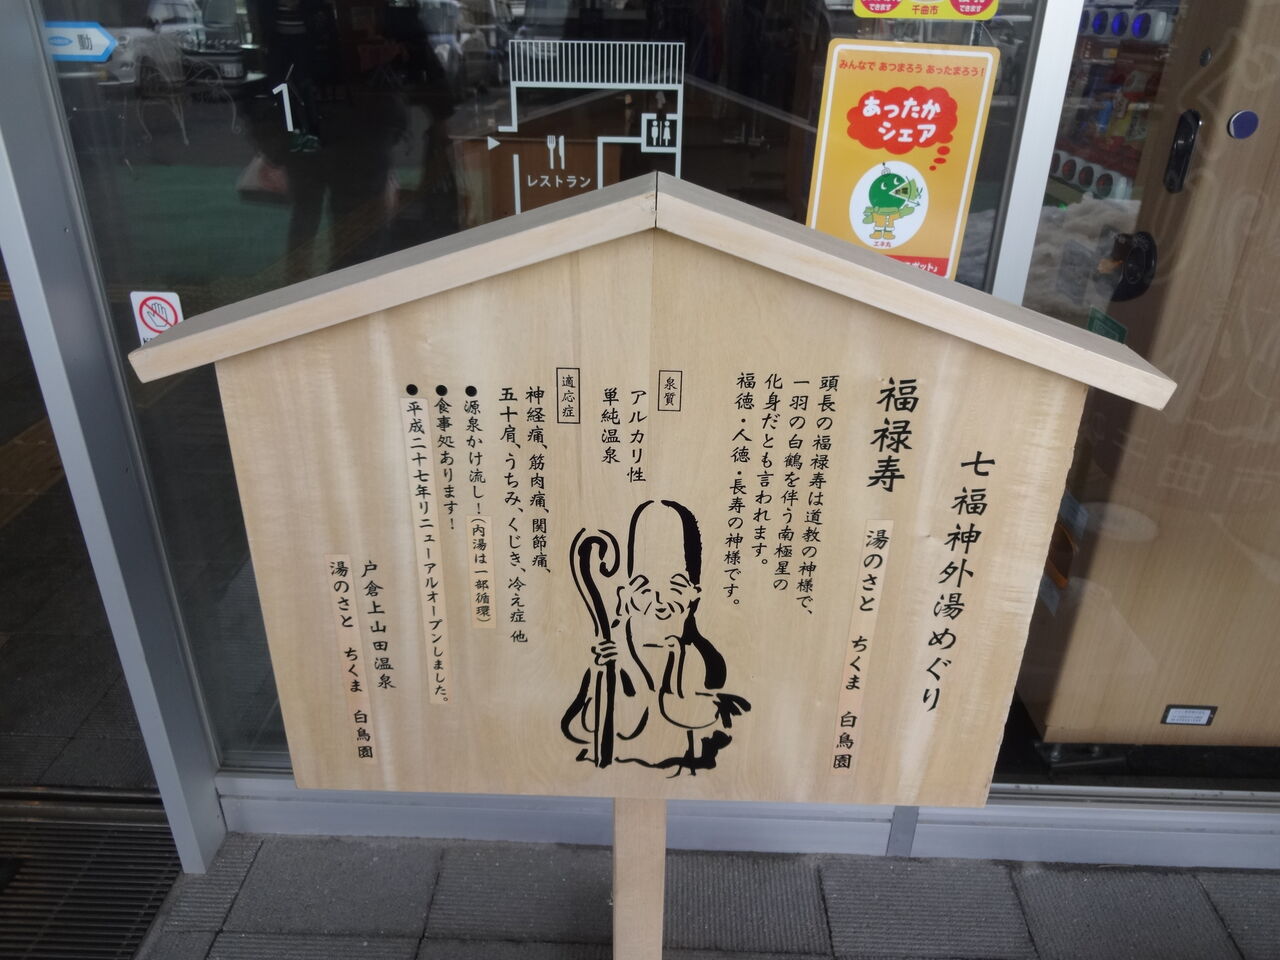 七福神外湯めぐり
福禄寿
湯のさと ちくま 白鳥園
頭長の福禄寿は道教の神様で、
一羽の白鶴を伴う南極星の
化身だとも言われます。
福徳・人徳・長寿の神様です。
泉質
アルカリ性
単純温泉
適応症
神経痛、筋肉痛、関節痛、
五十肩、うちみ、くじき、冷え症 他
●源泉かけ流し！（内湯は一部循環）
●食事処あります！
●平成二十七年リニューアルオープンしました。
戸倉上山田温泉
湯のさと ちくま 白鳥園
動
1
レストラン
できます
千曲市
できます
みんなで あつまろう あったまろう！
あったか
シェア
エネ丸